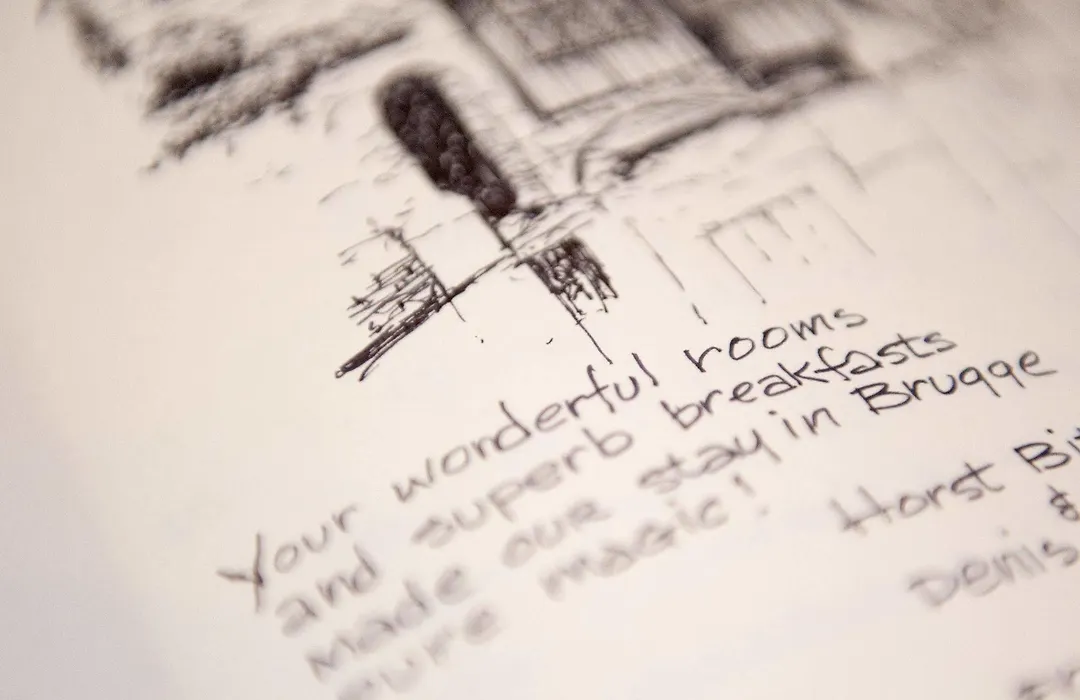 Your wonderful rooms
and superb breakfasts
made our stay in Brugge
pure magic!
Horst Bi
&
Denis